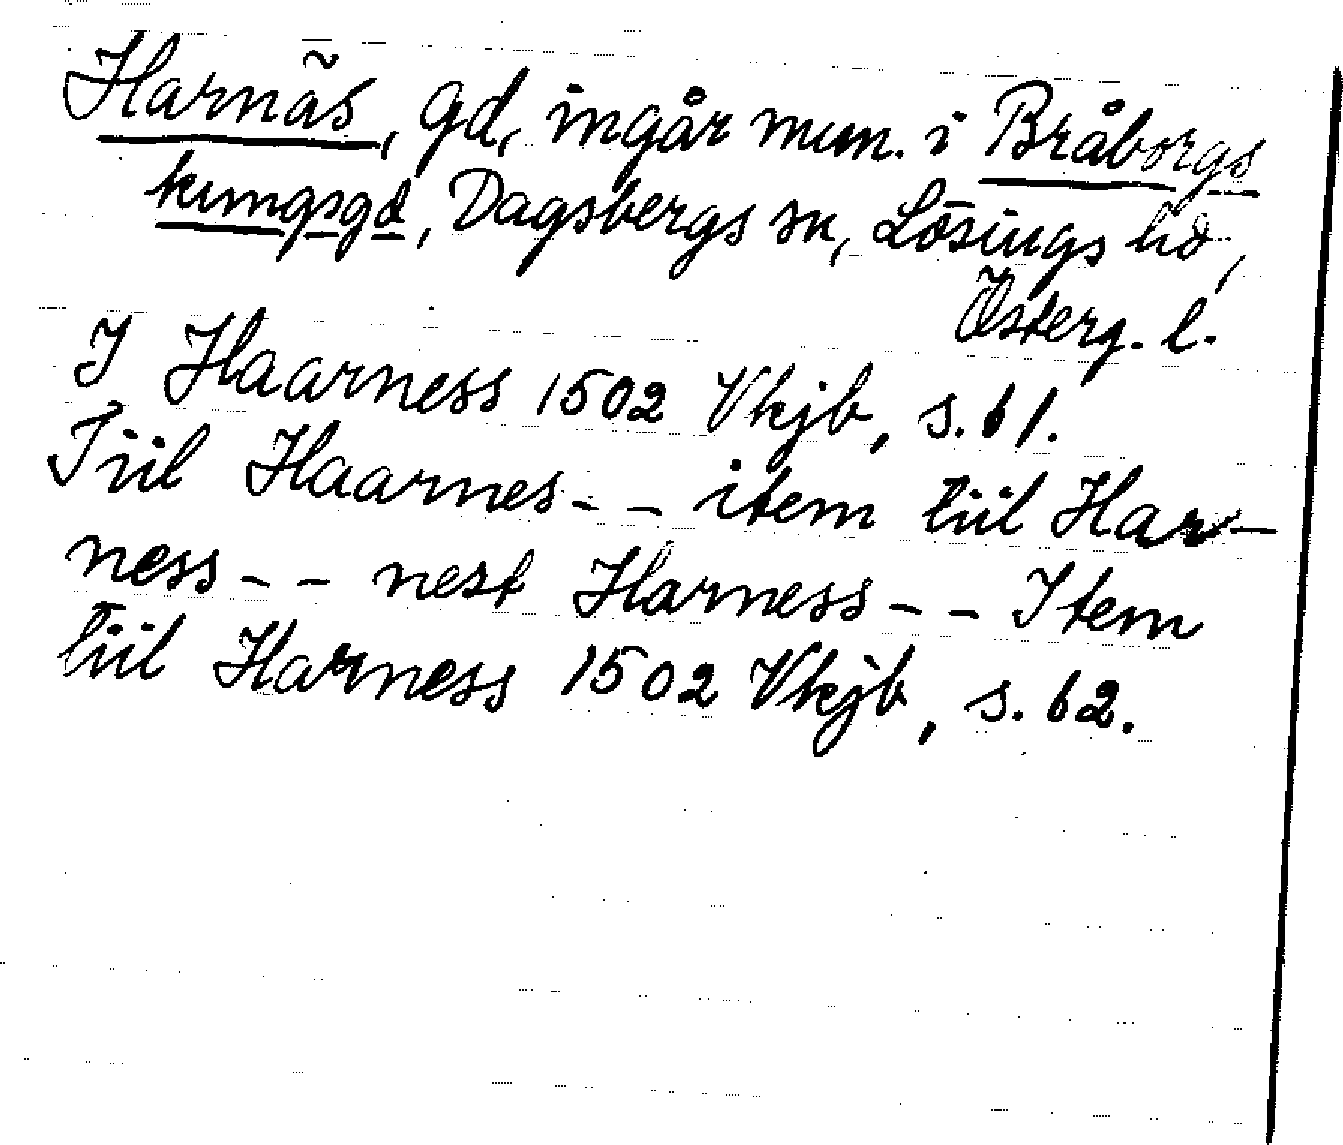 Harnäs, gd, ingår mun. i Bråborgs
kungsgd, Dagsbergs sn, Lösings hd,
Österg. l.
I Haarness 1502 Vkjb, s. 61.
Tiil Haarnes - - item tiil Har-
ness - - nest Harness - - Item
tiil Harness 1502 Vkjb, s. 62.